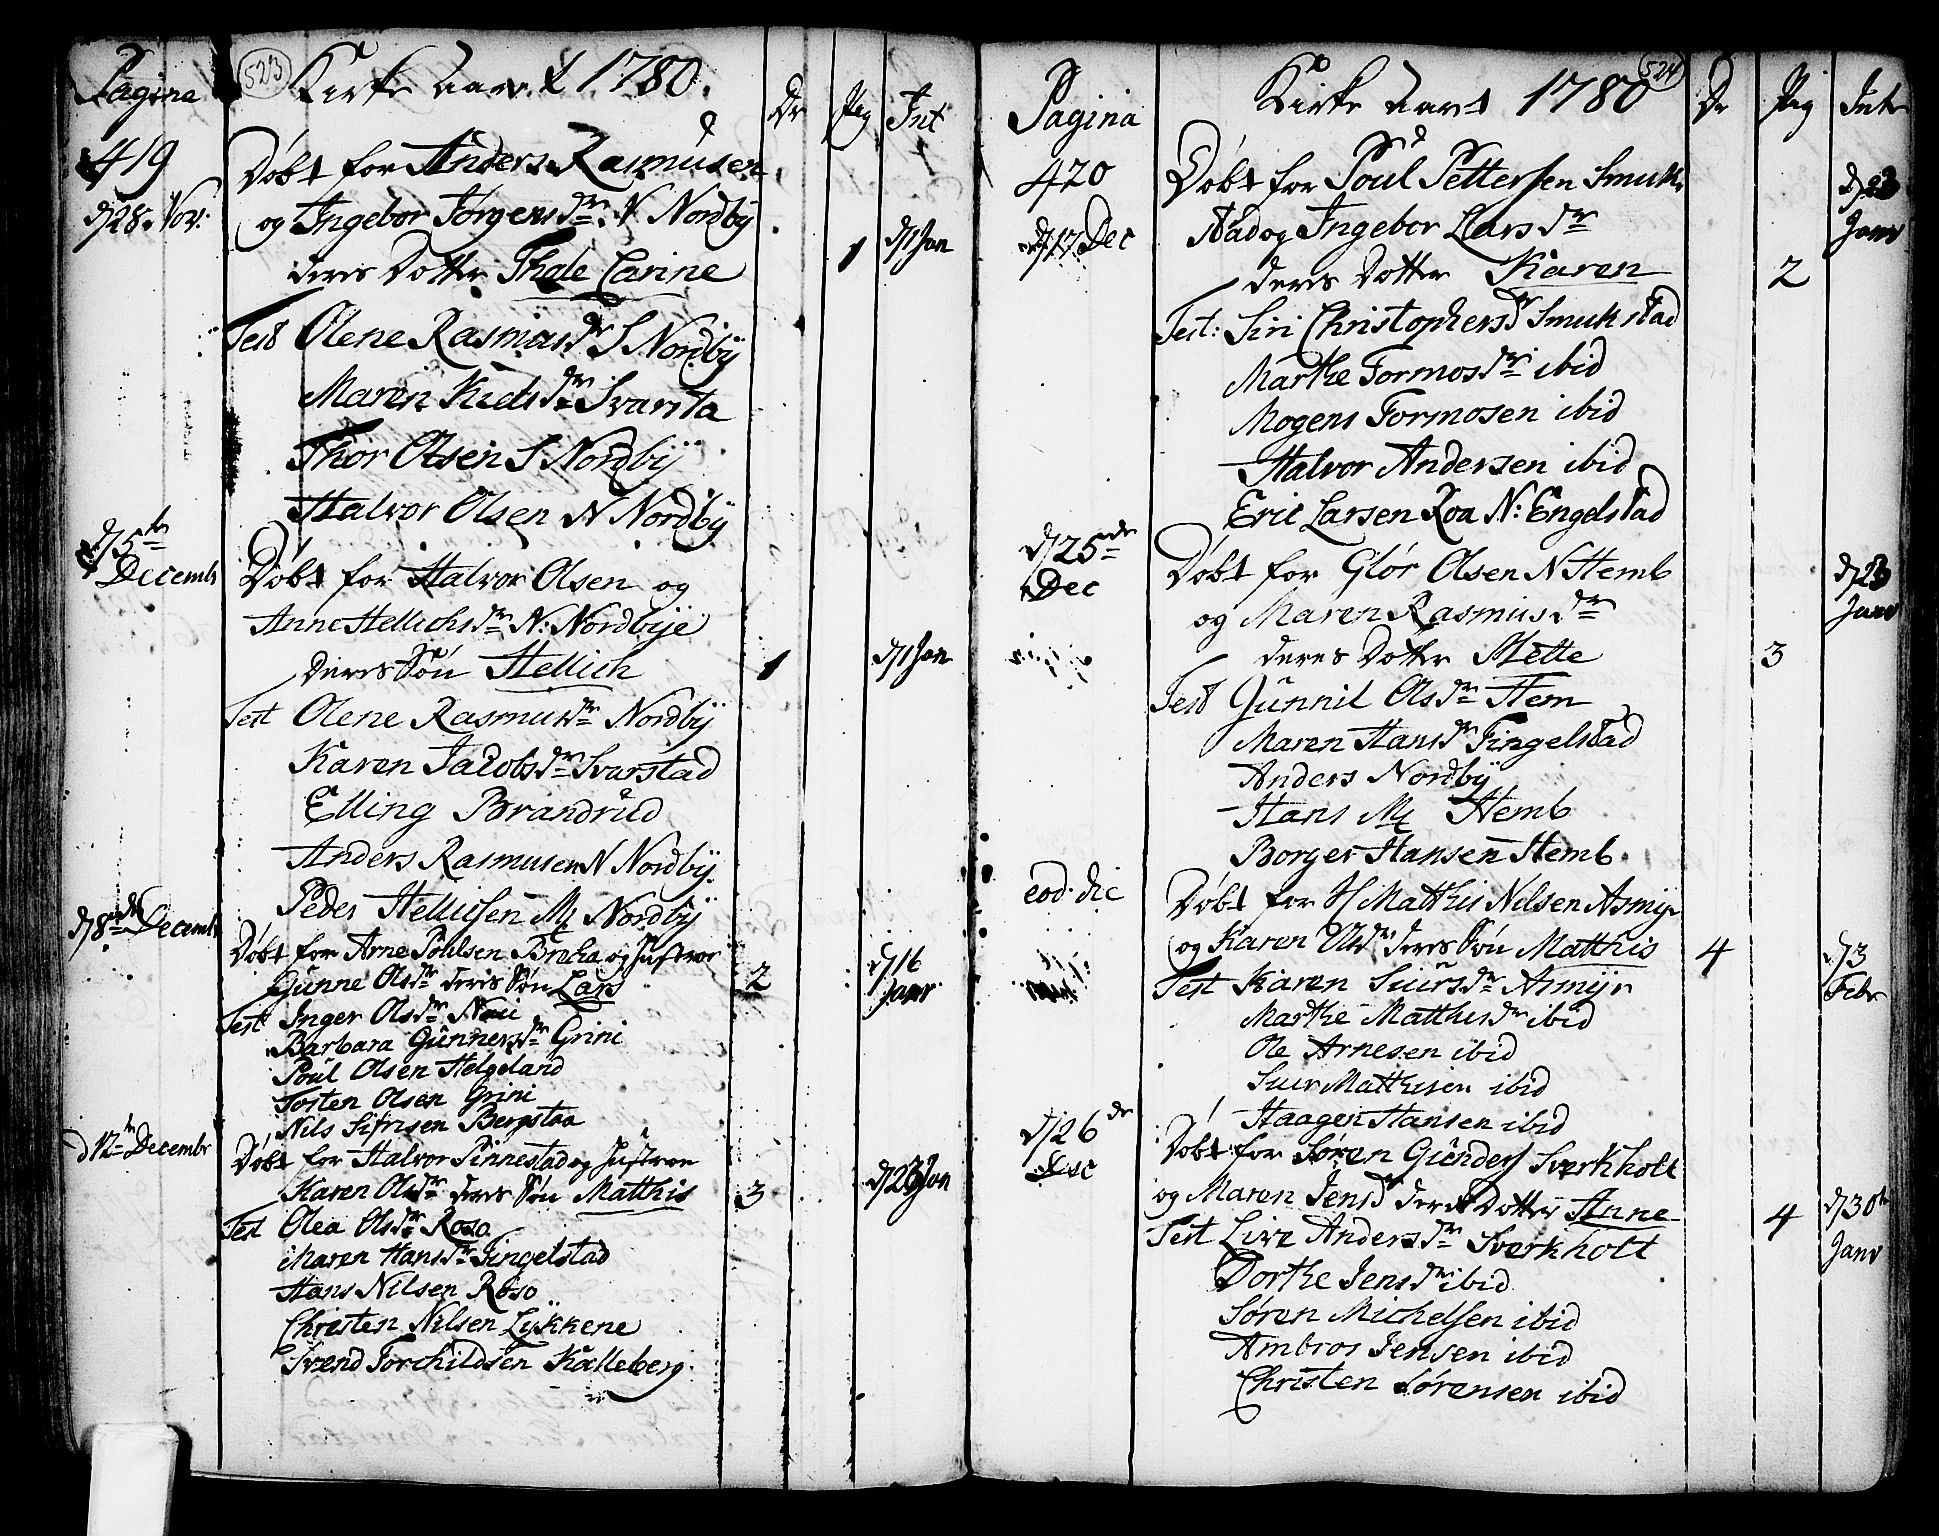 Pagina 523 Kirke Aaret 1780. Dr Pig Int
419 Døbt for Anders Rasmusen
d/28. Nov: og Ingebor Jørgensdr. N Nordbÿ
deres Dotter Thale Carine 1 d/1 Jan
Test Olene Rasmusdr S Nordbÿ
Maren Kieldsdr Svarsta
Thor Olsen S Nordbÿ
Halvor Olsen N Nordbÿ
d/5te Decembr Døbt for Halvor Olsen og
Anne Hellichsdr N: Nordbÿe
deres Søn Hellich 1 d/1 Jan
Test Olene Rasmusdr Nordbÿ
Karen Jacobsdr Svarstad
Elling Brandrud
Anders Rasmusen N Nordbÿ.
Peder Hellicsen M Nordbÿ
d/8de Decembr Døbt for Arne Poulsen Breka og Hustroe
Gunne Olsdr deres Søn Lars 2 d/16 Janr
Test Inger Olsdr
Barbara Gunnersdr Grini
Poul Olsen Helgeland
Tosten Olsen Grini
Nils Sifrisen Bergstaa
d 12te Decembr Døbt for Halvor Finnestad og Hustroe
Karen Olsdr deres Søn Matthis 3 d/23 Jan
Test Olea Olsdr Roso
Maren Hansdr Fingelstad
Hans Nilsen Roso
Christen Nilsen Lÿkkene
Svend Torchildsen Kalleberg.
Pagina Kirke Aaret 1780 524 Dr Pig Int
420 Døbt for Poul Pettersen Smuk
d/17 Dec stad og Ingebor Larsdr d/23 Janr
deres Dotter Karen 2
Test: Siri Christophersdr Smukstad
Marthe Tormosdr ibid
Mogens Tormosen ibid
Halvor Andersen ibid
Eric Larsen Roa N: Engelstad
d/25de Dec Døbt for Glør Olsen N Hemb d/23 Janr
og Maren Rasmusdr
deres Dotter Mette 3
Test Gunnil Olsdr Hem
Maren Hansdr Fingelstad
Anders Nordbÿ
Hans M Hemb
Borger Hansen Hemb
eod. die Døbt for H Matthis Nilsen Asmyr
og Karen Olsdr deres Søn Matthis 4 d/3 Febr
Test Karen Siursdr Asmÿr
Marthe Matthisdr ibid
Ole Arnesen ibid
Siur Matthisen ibid
Haagen Hansen ibid
d/26de Dec Døbt for Søren Gunders Sverkholt
og Maren Jensdr deres Dotter Anne 4 d/30te Janr
Test Live Andersdr Sverkholt
Dorthe Jensdr ibid
Søren Michelsen ibid
Ambros Jensen ibid
Christen Sørensen ibid